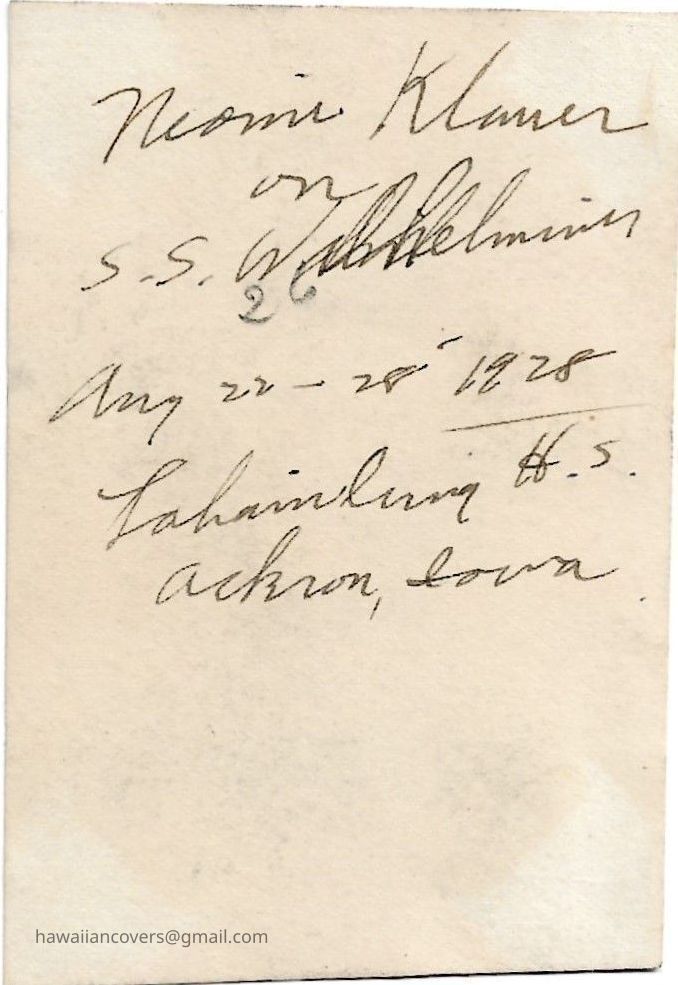 Neomi Klauer
on
S.S. Wilhelmina
26
Aug 22 - 28 1928
Lahainluna H.S.
Ackron, Iowa
hawaiiancovers@gmail.com